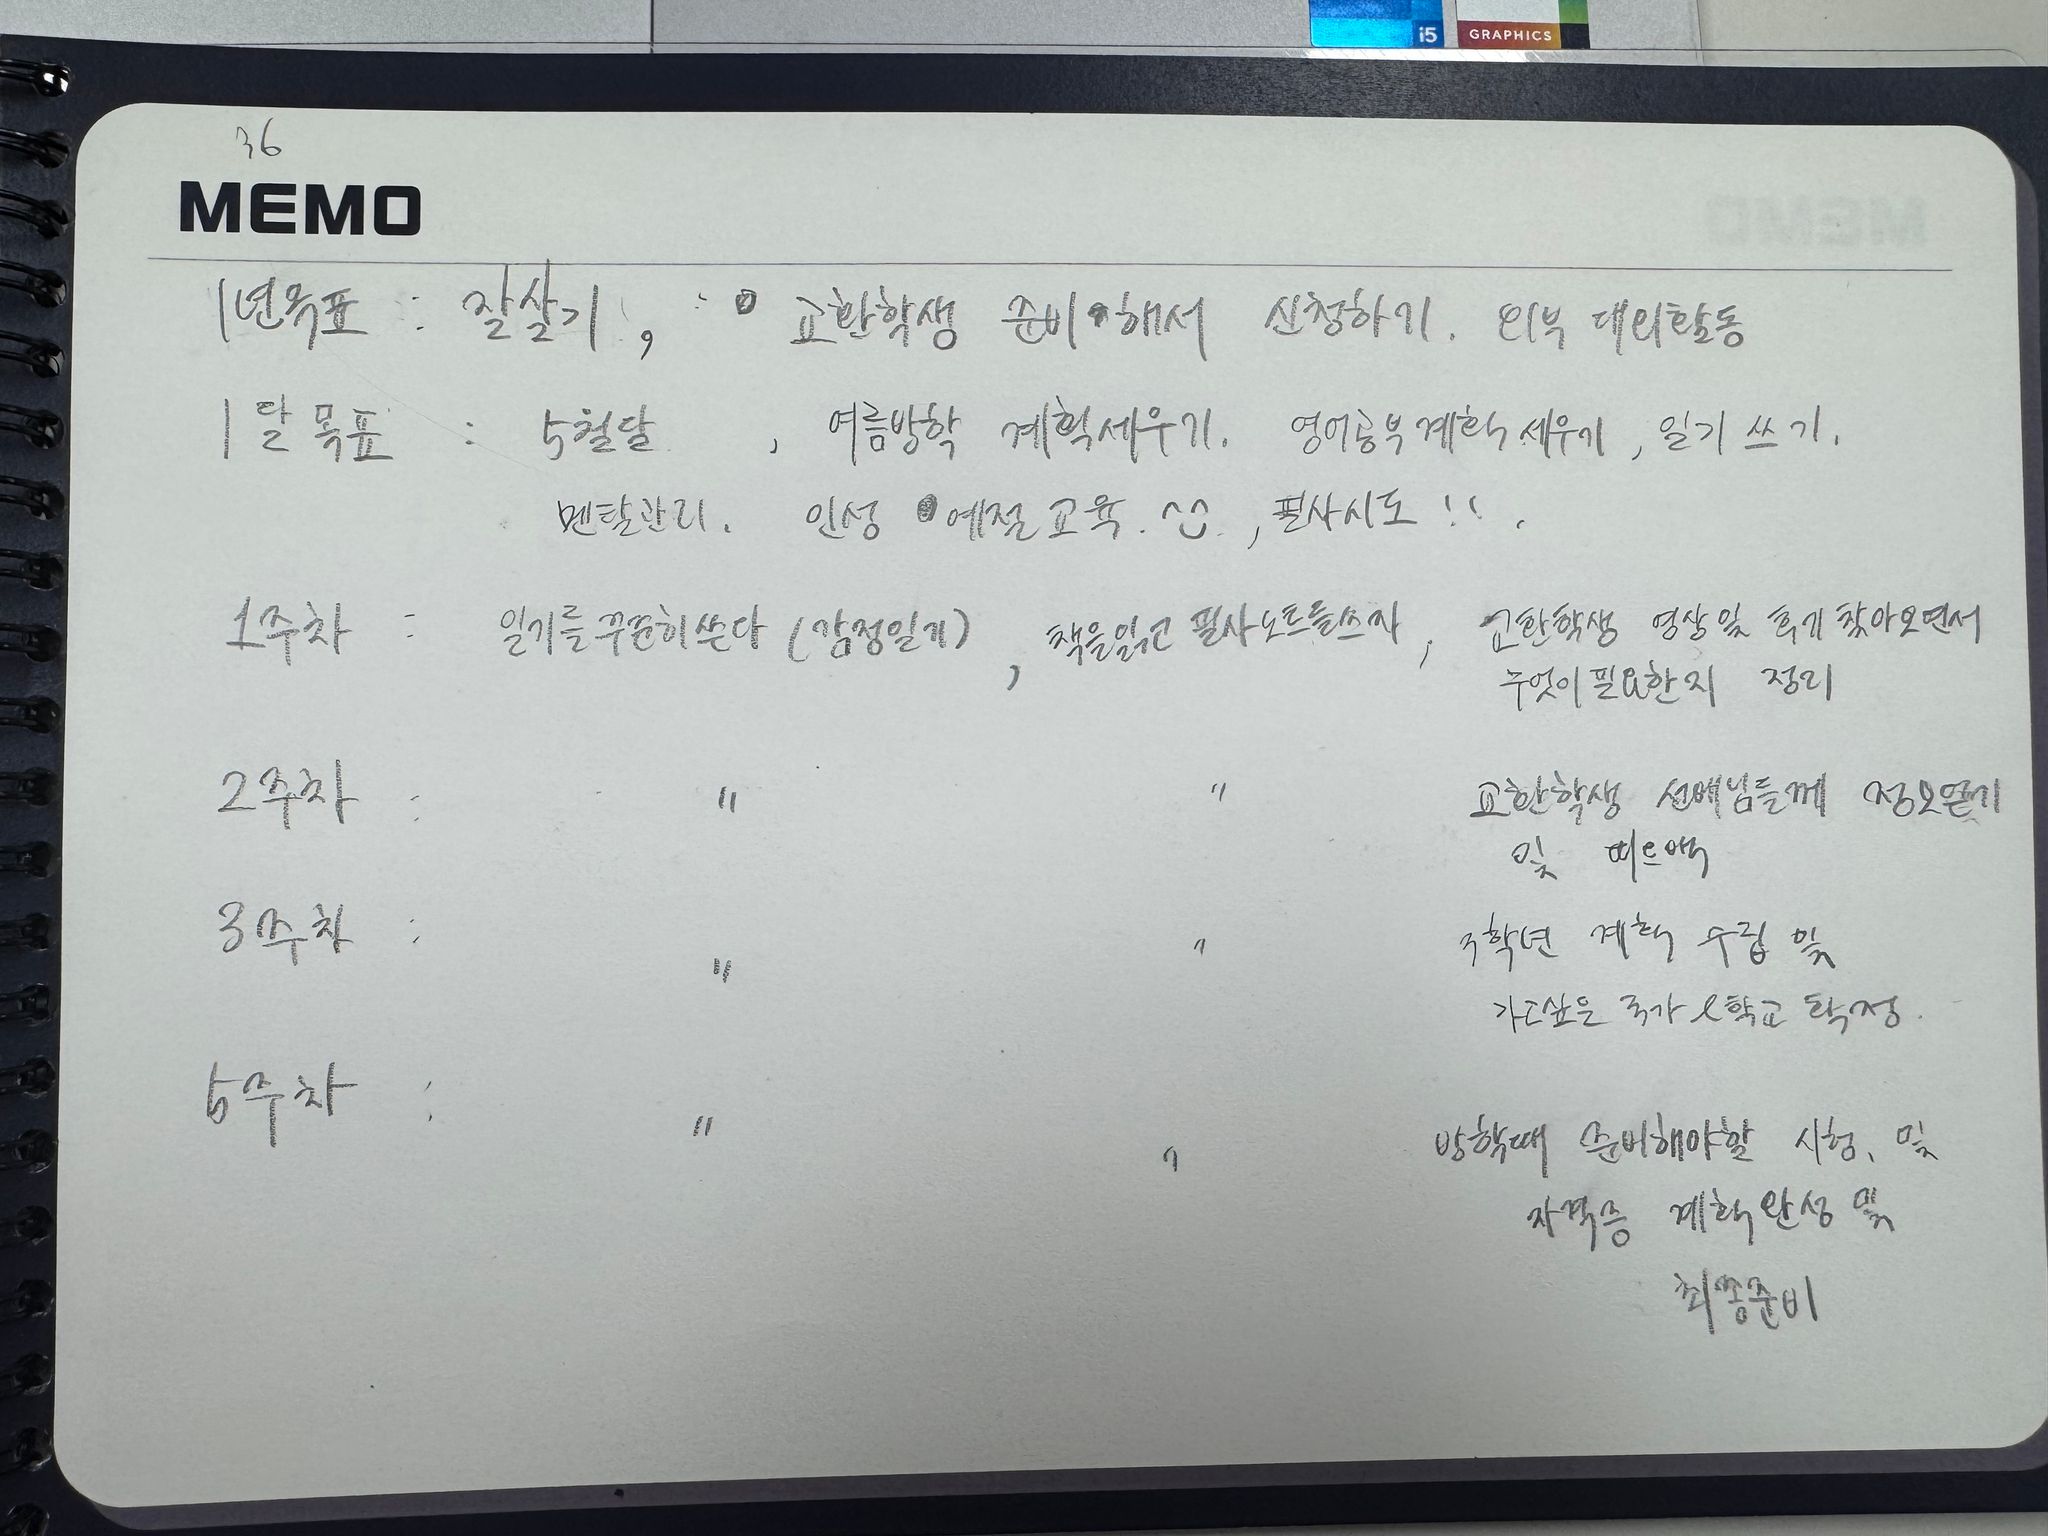 i5 GRAPHICS
36
MEMO
1년목표 : 잘살기, : 교환학생 준비해서 신청하기. 외부 대외활동
1달 목표 : 5월달 , 여름방학 계획세우기. 영어공부계획 세우기, 일기 쓰기.
멘탈관리. 인성 예절교육. ^^ , 필사시도!!.
1주차 : 일기를꾸준히쓴다 (감정일기) , 책을읽고 필사노트를쓰자, 교환학생 영상및 후기 찾아보면서
무엇이필요한지 정리
2주차 : " " 교환학생 선배님들께 정보얻기
및 피드백
3주차 : " " 3학년 계획 수립 및
가고싶은 국가 & 학교 확정.
5주차 : " " 방학때 준비해야할 시험, 및
자격증 계획완성 및
최종준비